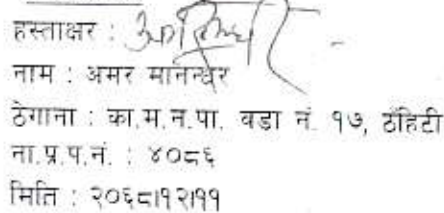 हस्ताक्षर :
नाम : अमर मानन्धर
ठेगाना : का.म.न.पा. वडा नं. १७, ठँहिटी
ना.प्र.प.नं. : ४०८६
मिति : २०६८।१२।११